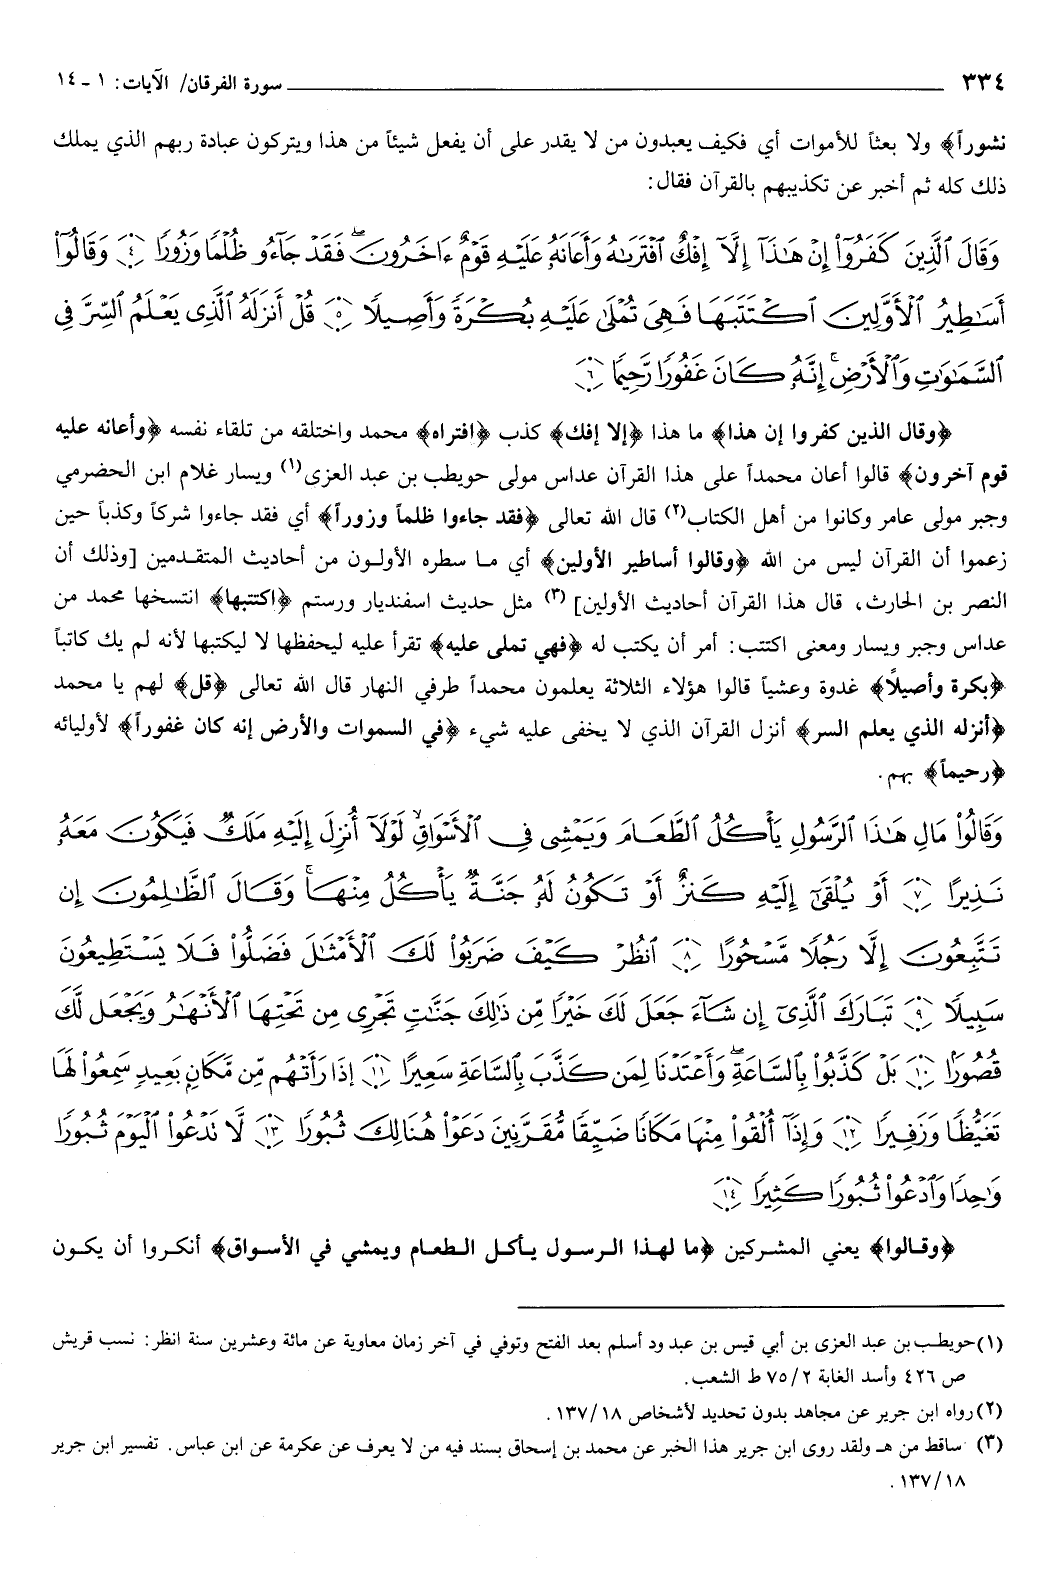 ٣٣٤ سورة الفرقان/ الآيات: ١ - ١٤
نشوراً﴾ ولا بعثاً للأموات أي فكيف يعبدون من لا يقدر على أن يفعل شيئاً من هذا ويتركون عبادة ربهم الذي يملك
ذلك كله ثم أخبر عن تكذيبهم بالقرآن فقال:
وَقَالَ ٱلَّذِينَ كَفَرُوٓاْ إِنۡ هَٰذَآ إِلَّآ إِفۡكٌ ٱفۡتَرَىٰهُ وَأَعَانَهُۥ عَلَيۡهِ قَوۡمٌ ءَاخَرُونَۖ فَقَدۡ جَآءُو ظُلۡمٗا وَزُورٗا ٤ وَقَالُوٓاْ
أَسَٰطِيرُ ٱلۡأَوَّلِينَ ٱكۡتَتَبَهَا فَهِيَ تُمۡلَىٰ عَلَيۡهِ بُكۡرَةٗ وَأَصِيلٗا ٥ قُلۡ أَنزَلَهُ ٱلَّذِي يَعۡلَمُ ٱلسِّرَّ فِي
ٱلسَّمَٰوَٰتِ وَٱلۡأَرۡضِۚ إِنَّهُۥ كَانَ غَفُورٗا رَّحِيمٗا ٦
﴿وقال الذين كفروا إن هذا﴾ ما هذا ﴿إلا إفك﴾ كذب ﴿افتراه﴾ محمد واختلقه من تلقاء نفسه ﴿وأعانه عليه
قوم آخرون﴾ قالوا أعان محمداً على هذا القرآن عداس مولى حويطب بن عبد العزى(١) ويسار غلام ابن الحضرمي
وجبر مولى عامر وكانوا من أهل الكتاب(٢) قال الله تعالى ﴿فقد جاءوا ظلماً وزوراً﴾ أي فقد جاءوا شركاً وكذباً حين
زعموا أن القرآن ليس من الله ﴿وقالوا أساطير الأولين﴾ أي ما سطره الأولون من أحاديث المتقدمين [وذلك أن
النصر بن الحارث، قال هذا القرآن أحاديث الأولين] (٣) مثل حديث اسفنديار ورستم ﴿اكتتبها﴾ انتسخها محمد من
عداس وجبر ويسار ومعنى اكتتب: أمر أن يكتب له ﴿فهي تملى عليه﴾ تقرأ عليه ليحفظها لا ليكتبها لأنه لم يك كاتباً
﴿بكرة وأصيلاً﴾ غدوة وعشياً قالوا هؤلاء الثلاثة يعلمون محمداً طرفي النهار قال الله تعالى ﴿قل﴾ لهم يا محمد
﴿أنزله الذي يعلم السر﴾ أنزل القرآن الذي لا يخفى عليه شيء ﴿في السموات والأرض إنه كان غفوراً﴾ لأوليائه
﴿رحيماً﴾ بهم.
وَقَالُواْ مَالِ هَٰذَا ٱلرَّسُولِ يَأۡكُلُ ٱلطَّعَامَ وَيَمۡشِي فِي ٱلۡأَسۡوَاقِۙ لَوۡلَآ أُنزِلَ إِلَيۡهِ مَلَكٞ فَيَكُونَ مَعَهُۥ
نَذِيرًا ٧ أَوۡ يُلۡقَىٰٓ إِلَيۡهِ كَنزٌ أَوۡ تَكُونُ لَهُۥ جَنَّةٞ يَأۡكُلُ مِنۡهَاۚ وَقَالَ ٱلظَّٰلِمُونَ إِن
تَتَّبِعُونَ إِلَّا رَجُلٗا مَّسۡحُورًا ٨ ٱنظُرۡ كَيۡفَ ضَرَبُواْ لَكَ ٱلۡأَمۡثَٰلَ فَضَلُّواْ فَلَا يَسۡتَطِيعُونَ
سَبِيلٗا ٩ تَبَارَكَ ٱلَّذِيٓ إِن شَآءَ جَعَلَ لَكَ خَيۡرٗا مِّن ذَٰلِكَ جَنَّٰتٖ تَجۡرِي مِن تَحۡتِهَا ٱلۡأَنۡهَٰرُ وَيَجۡعَل لَّكَ
قُصُورَۢا ١٠ بَلۡ كَذَّبُواْ بِٱلسَّاعَةِۖ وَأَعۡتَدۡنَا لِمَن كَذَّبَ بِٱلسَّاعَةِ سَعِيرًا ١١ إِذَا رَأَتۡهُم مِّن مَّكَانِۭ بَعِيدٖ سَمِعُواْ لَهَا
تَغَيُّظٗا وَزَفِيرٗا ١٢ وَإِذَآ أُلۡقُواْ مِنۡهَا مَكَانٗا ضَيِّقٗا مُّقَرَّنِينَ دَعَوۡاْ هُنَالِكَ ثُبُورٗا ١٣ لَّا تَدۡعُواْ ٱلۡيَوۡمَ ثُبُورٗا
وَٰحِدٗا وَٱدۡعُواْ ثُبُورٗا كَثِيرٗا ١٤
﴿وقالوا﴾ يعني المشركين ﴿ما لهذا الرسول يأكل الطعام ويمشي في الأسواق﴾ أنكروا أن يكون
(١) حويطب بن عبد العزى بن أبي قيس بن عبد ود أسلم بعد الفتح وتوفي في آخر زمان معاوية عن مائة وعشرين سنة انظر: نسب قريش
ص ٤٢٦ وأسد الغابة ٢/ ٧٥ ط الشعب.
(٢) رواه ابن جرير عن مجاهد بدون تحديد لأشخاص ١٨/ ١٣٧.
(٣) ساقط من هـ ولقد روى ابن جرير هذا الخبر عن محمد بن إسحاق بسند فيه من لا يعرف عن عكرمة عن ابن عباس. تفسير ابن جرير
١٨/ ١٣٧.